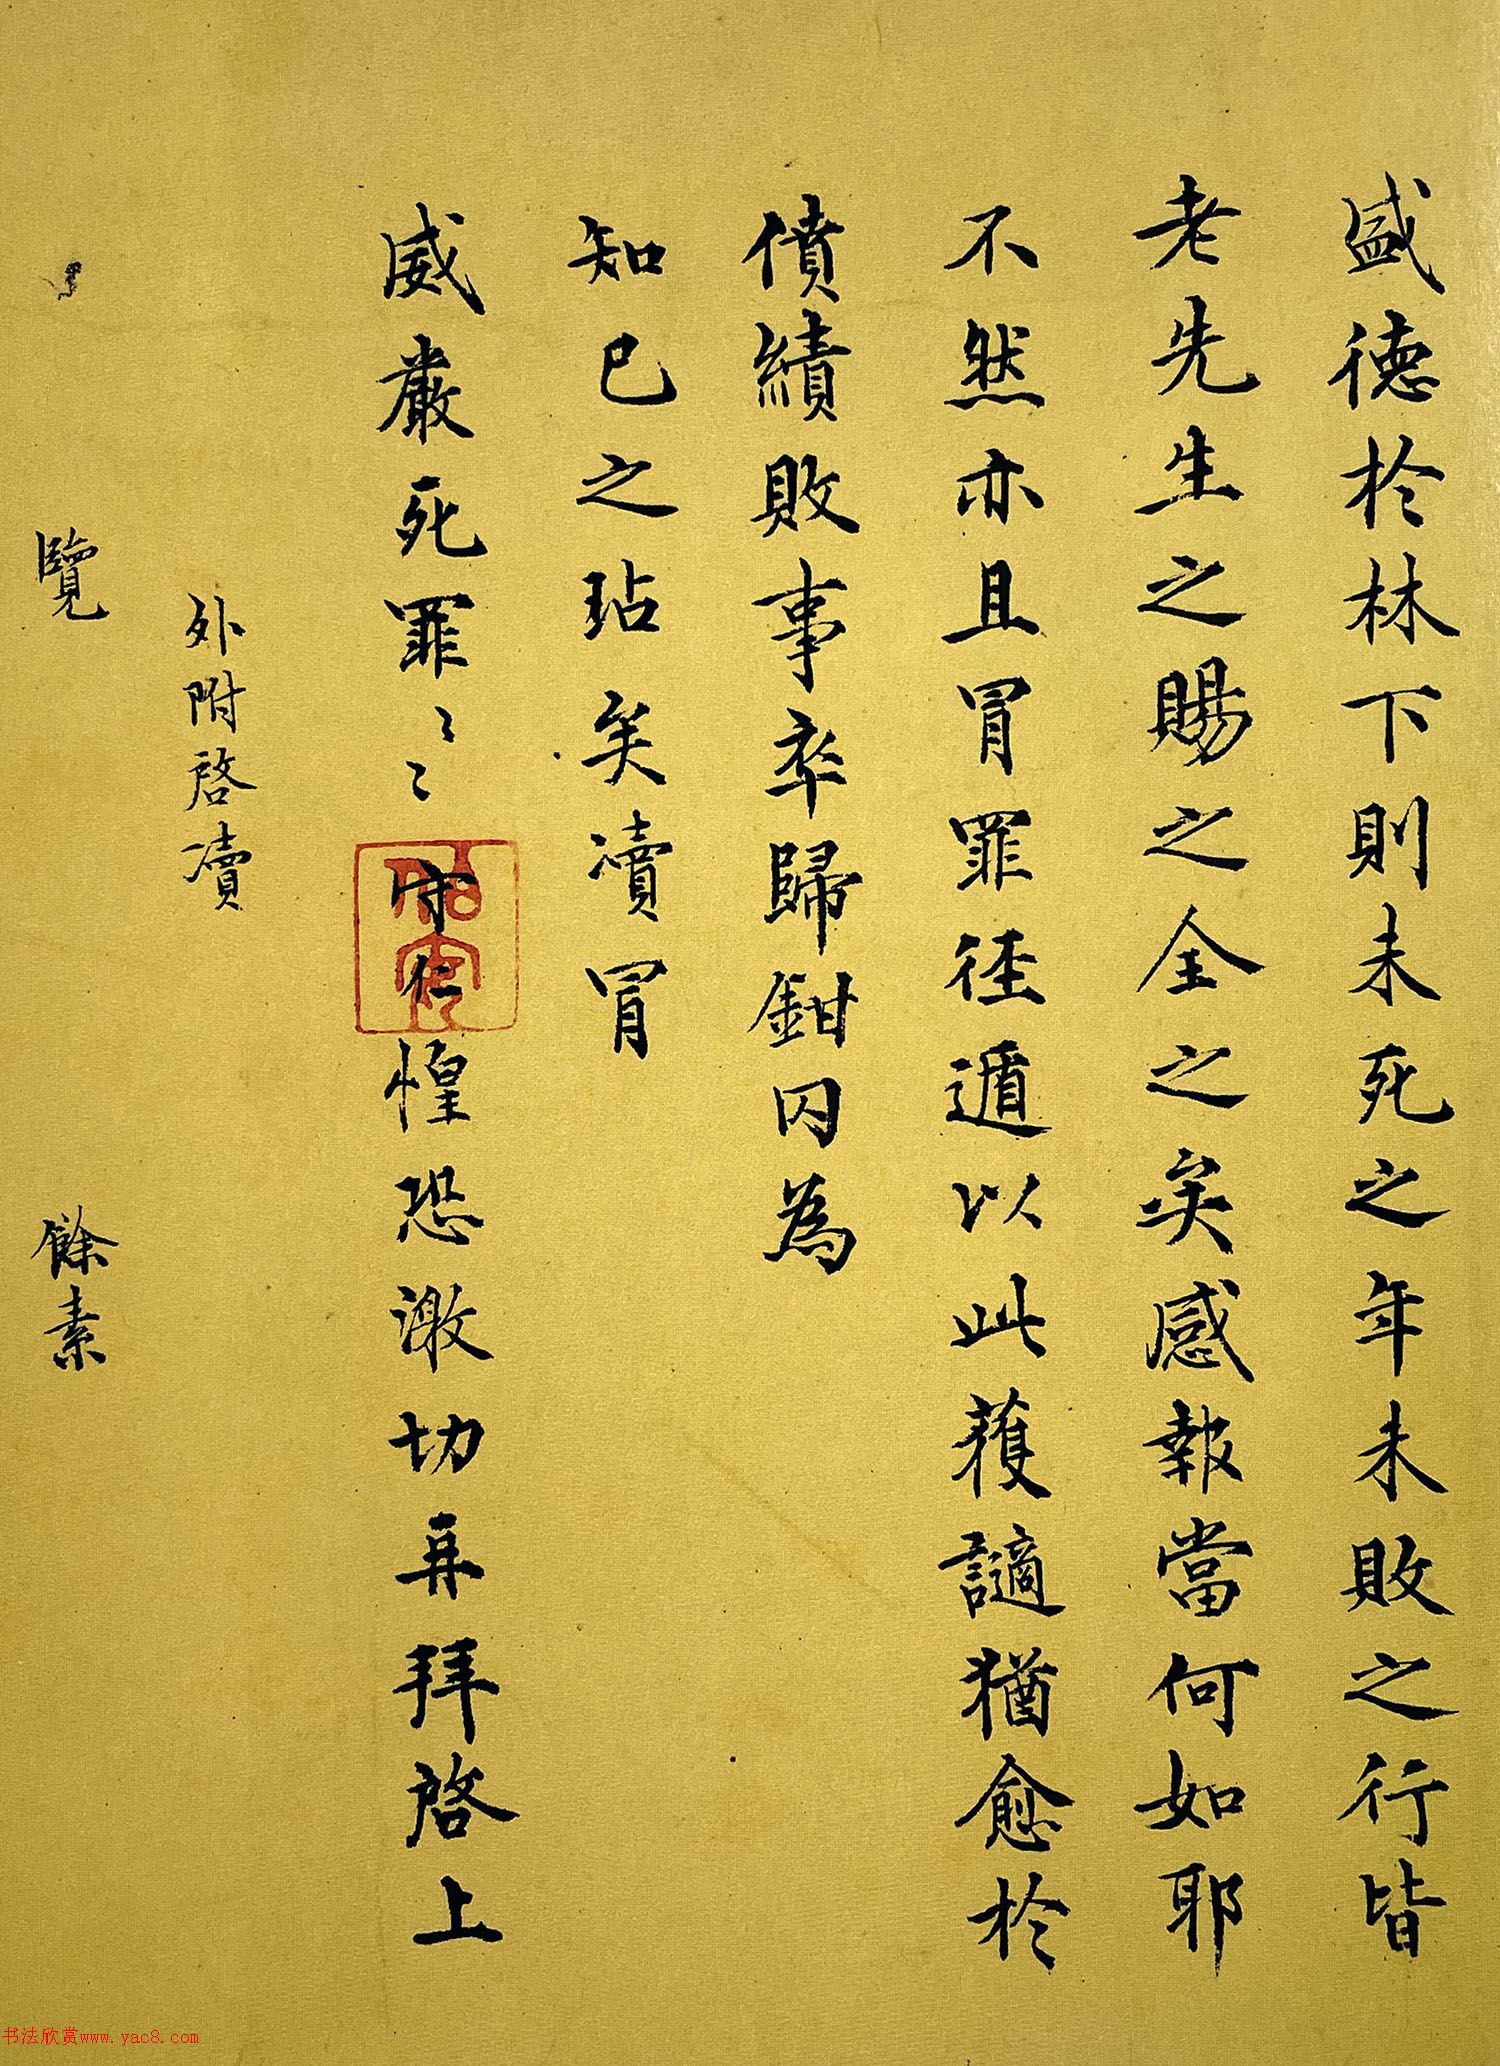 盛德於林下則未死之年未敗之行皆
老先生之賜之全之矣感報當何如耶
不然亦且冒罪徑遁以此獲謫猶愈於
僨績敗事卒歸鉗囚為
知己之玷矣瀆冒
威嚴死罪〻〻守仁惶恐激切再拜啓上
外附啓瀆
覽 餘素
书法欣赏www.yac8.com